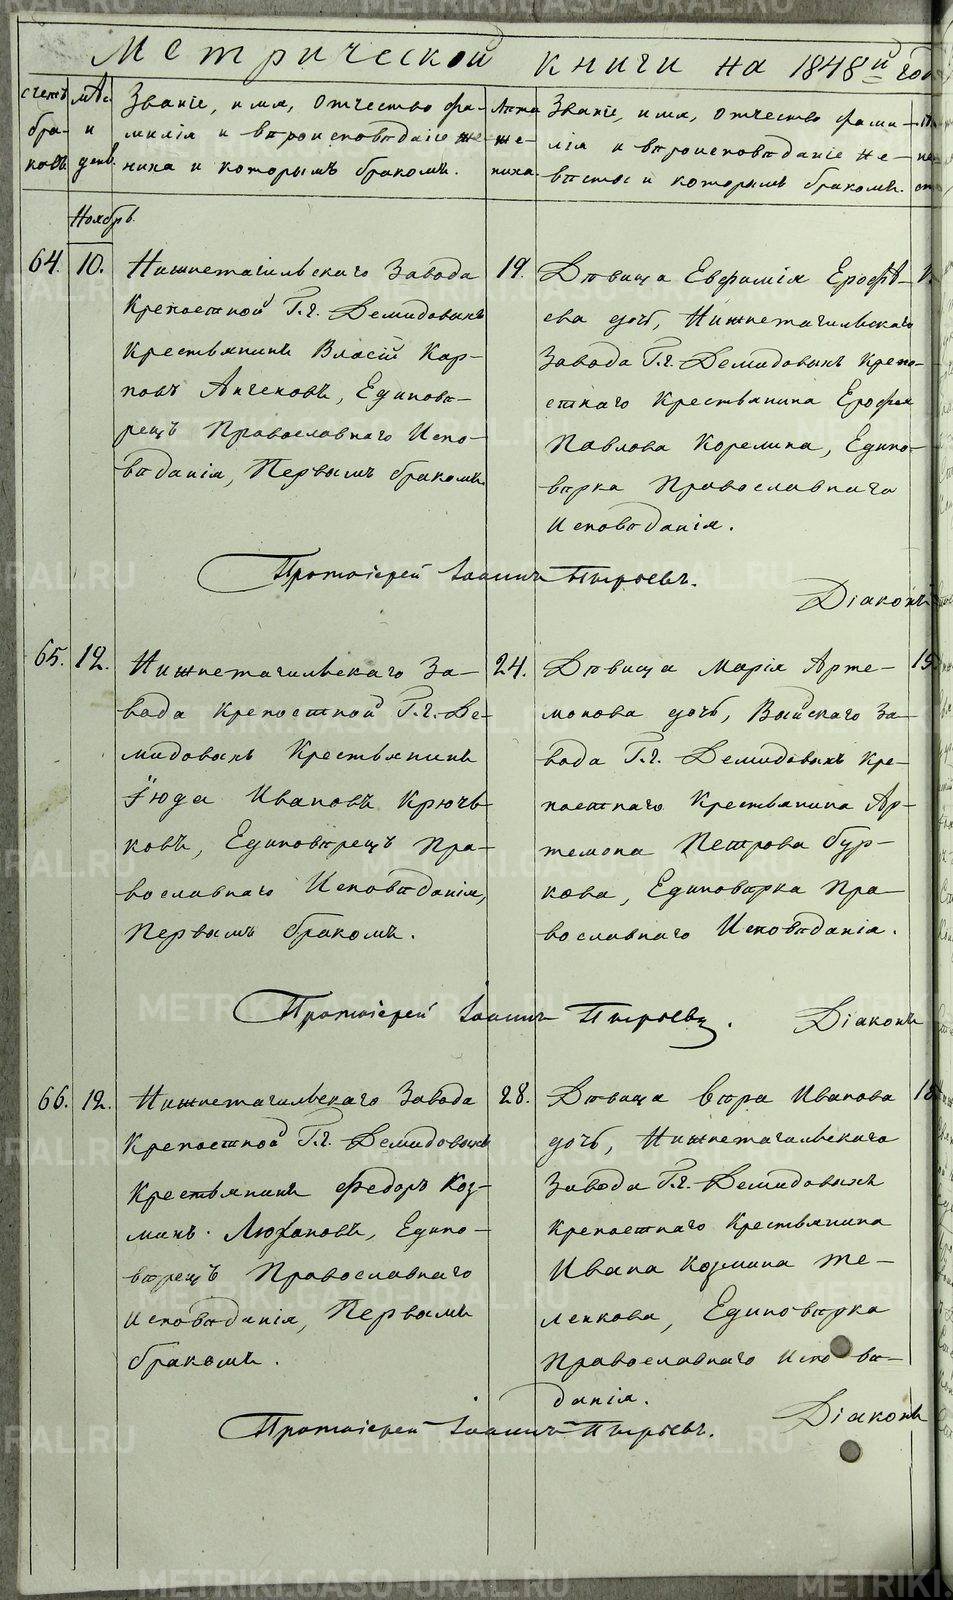 Метрической книги на 1848й год
счетъ бра- ковъ
Мѣс. и день.
Званіе, имя, отчество фа-
милія и вѣроисповѣданіе же-
ниха и которымъ бракомъ.
Лѣта же- ниха.
Званіе, имя, отчество фами-
лія и вѣроисповѣданіе не-
вѣсты и которымъ бракомъ.
Ноябрь
64. 10.
Нижнетагильскаго Завода
Крѣпостной Г.г. Демидовыхъ
Крестьянинъ Власій Кар-
повъ Анчековъ, Единовѣ-
рецъ Православнаго Испо-
вѣданія, Первымъ бракомъ.
19.
Дѣвица Евфимія Ерофѣ-
ева дочь, Нижнетагильскаго
Завода Г.г. Демидовыхъ Крепо-
стнаго Крестьянина Ерофея
Павлова Корелина, Едино-
вѣрка Православнаго
Исповѣданія.
Протоіерей Іоаннъ Пырьевъ.
Діаконъ
65. 12.
Нижнетагильскаго За-
вода Крепостной Г.г. Де-
мидовыхъ Крестьянинъ
Іюда Ивановъ Крючь-
ковъ, Единовѣрецъ Пра-
вославнаго Исповѣданія,
Первымъ бракомъ.
24.
Дѣвица Марія Арте-
монова дочь, Выйскаго За-
вода Г.г. Демидовыхъ Кре-
постнаго Крестьянина Ар-
темона Петрова Бур-
кова, Единовѣрка Пра-
вославнаго Исповѣданія.
Протоіерей Іоаннъ Пырьевъ.
Діаконъ
66. 12.
Нижнетагильскаго Завода
Крепостной Г.г. Демидовыхъ
Крестьянинъ Федоръ Коз-
минъ Люхановъ, Едино-
вѣрецъ Православнаго
Исповѣданія, Первымъ
бракомъ.
28.
Дѣвица Вѣра Иванова
дочь, Нижнетагильскаго
Завода Г.г. Демидовыхъ
Крепостнаго Крестьянина
Ивана Козмина Же-
ленкова, Единовѣрка
Православнаго Исповѣ-
данія.
Протоіерей Іоаннъ Пырьевъ.
Діаконъ
METRIKI.GASO-URAL.RU